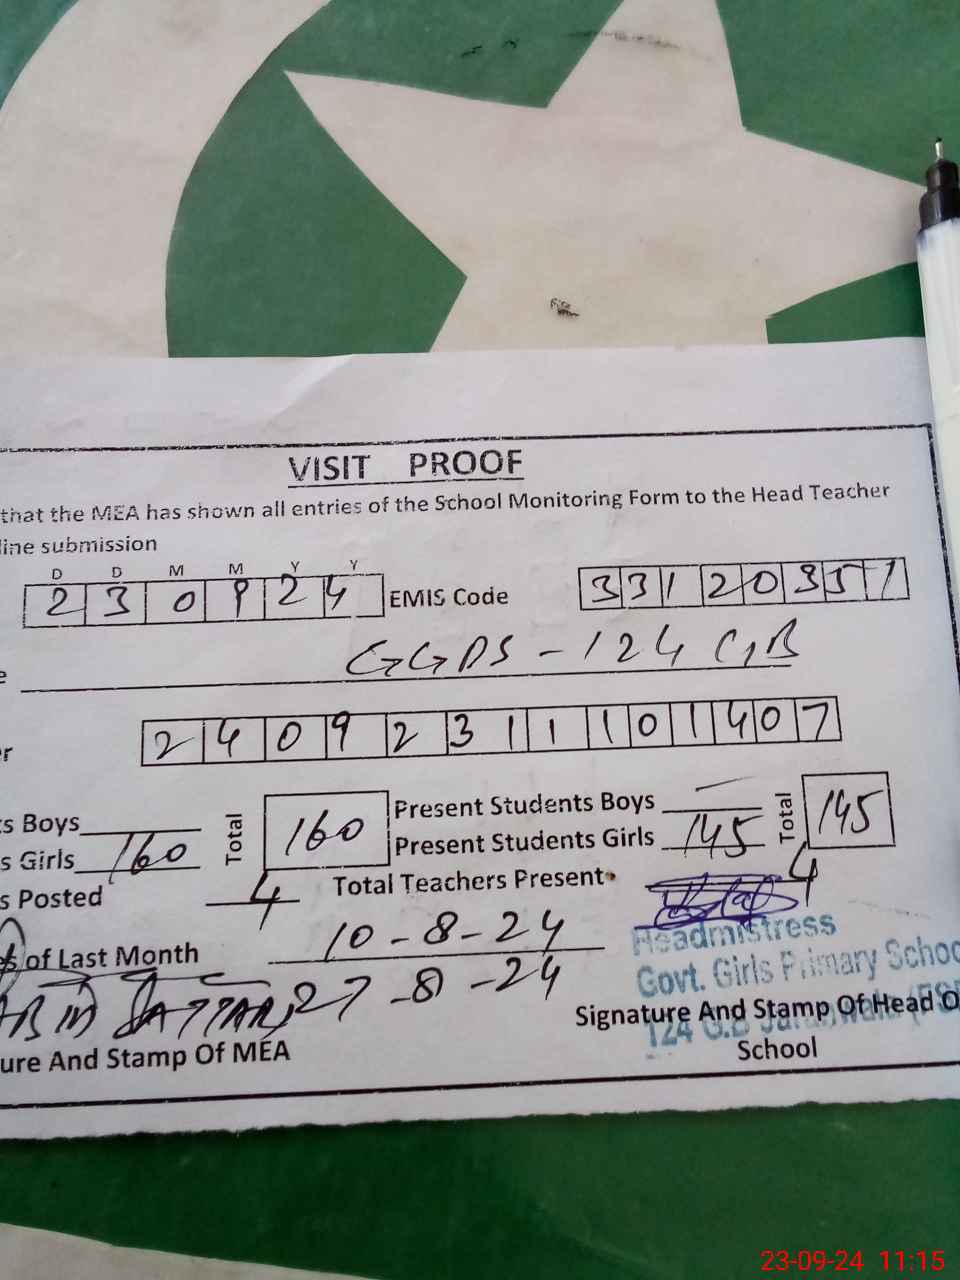 VISIT PROOF
that the MEA has shown all entries of the School Monitoring Form to the Head Teacher
line submission
D D M M Y Y
2 3 0 9 2 4 EMIS Code 3 3 1 2 0 3 5 1
GGPS - 124 G,B
2 4 0 9 2 3 1 1 1 0 1 4 0 7
s Boys Total 160 Present Students Boys Total 145
s Girls 160 Present Students Girls 145
s Posted 4 Total Teachers Present 4
of Last Month 10-8-24
SATTAR 27-8-24
Headmistress
Govt. Girls Primary School
124 G.B Jaranwala
Signature And Stamp Of Head O
School
ure And Stamp Of MEA
23-09-24 11:15